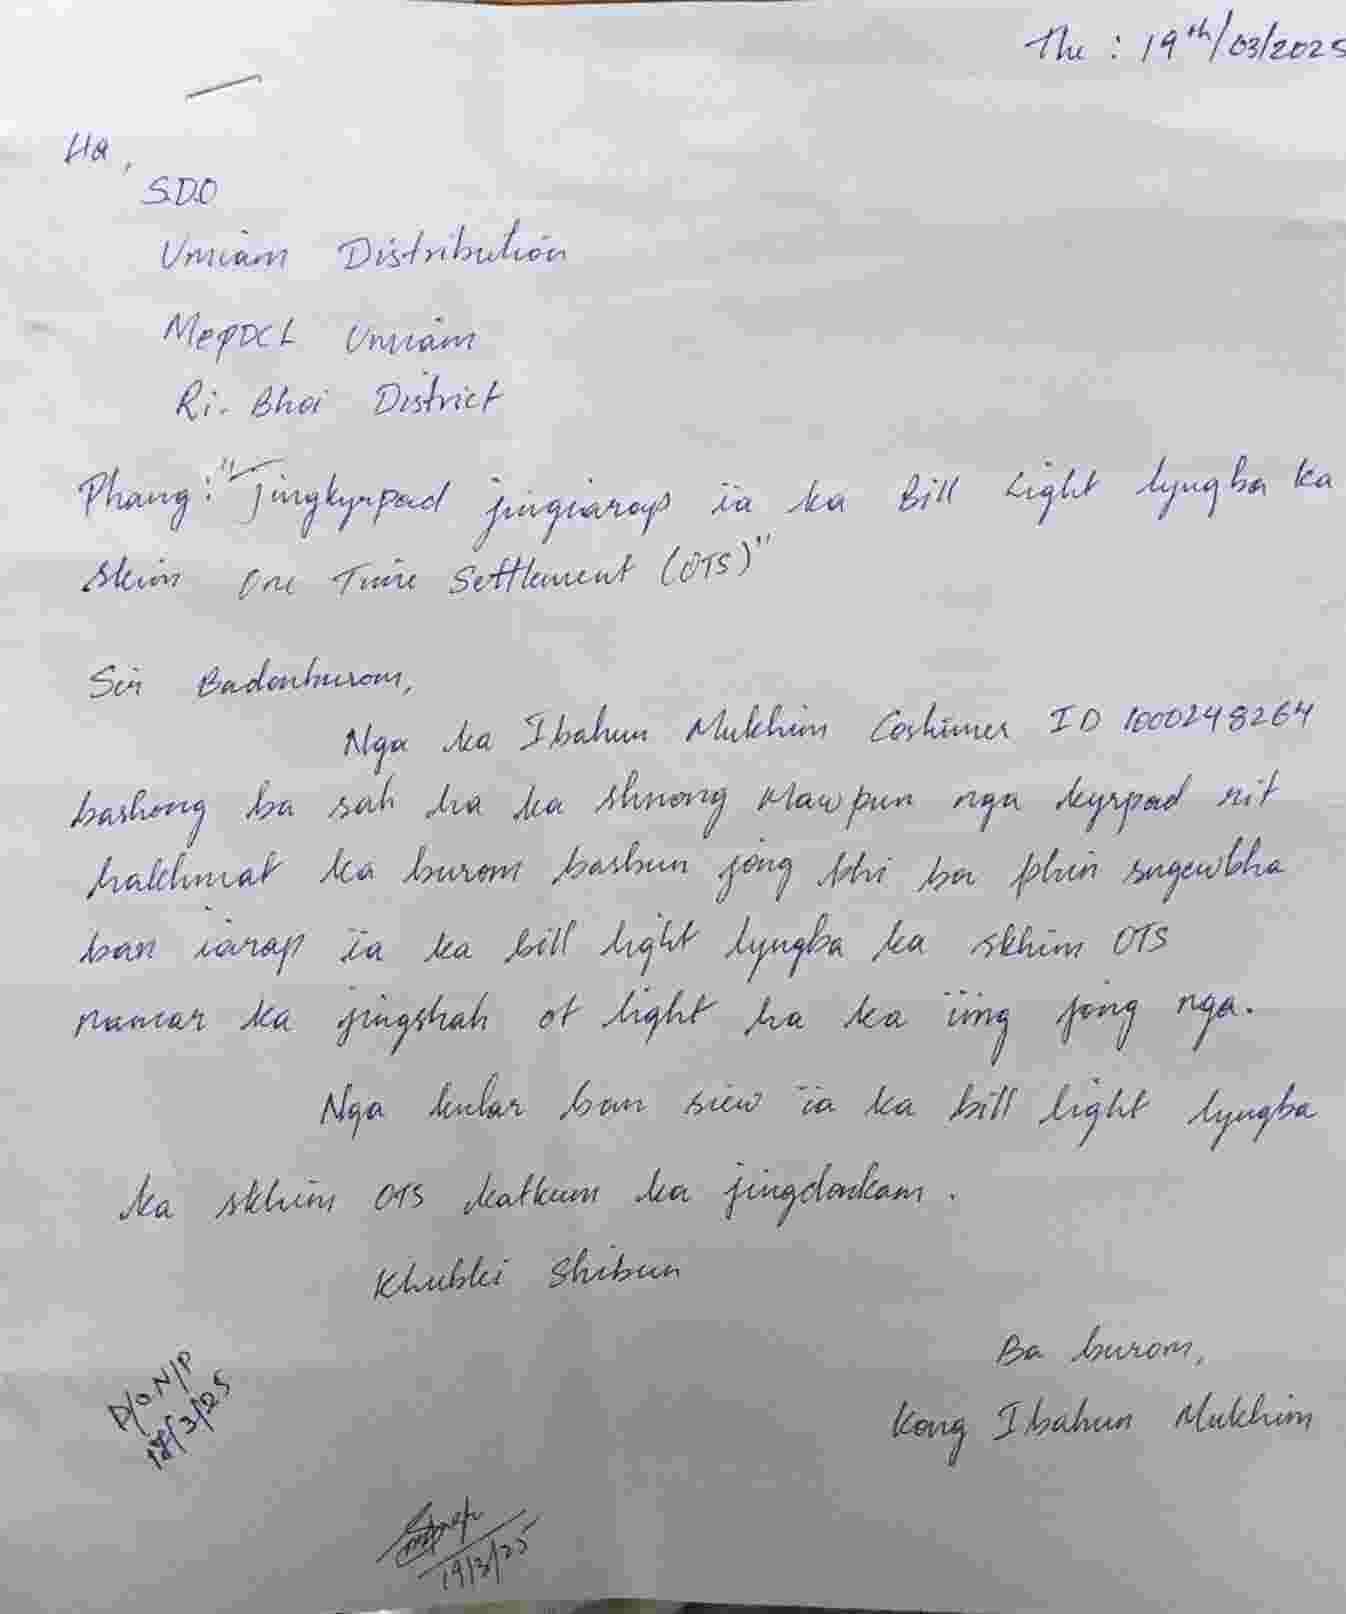 The : 19th/03/2025
Ha,
S.D.O
Umiam Distribution
MePDCL Umiam
Ri-Bhoi District
Phang: "Jingkyrpad jingiarap ïa ka Bill Light lyngba ka
skim One Time Settlement (OTS)"
Sir Badonburom,
Nga ka Ibahun Mukhim Costumer ID 1000248264
bashong ba sah ha ka shnong Mawpun nga kyrpad rit
hakhmat ka burom barbun jong phi ba phin sngewbha
ban ïarap ïa ka bill light lyngba ka skhim OTS
namar ka jingshah ot light ha ka ïing jong nga.
Nga kular ban siew ïa ka bill light lyngba
ka skhim OTS katkum ka jingdonkam.
Khublei Shibun
Ba burom,
Kong Ibahun Mukhim
D/o N/P
19/3/25